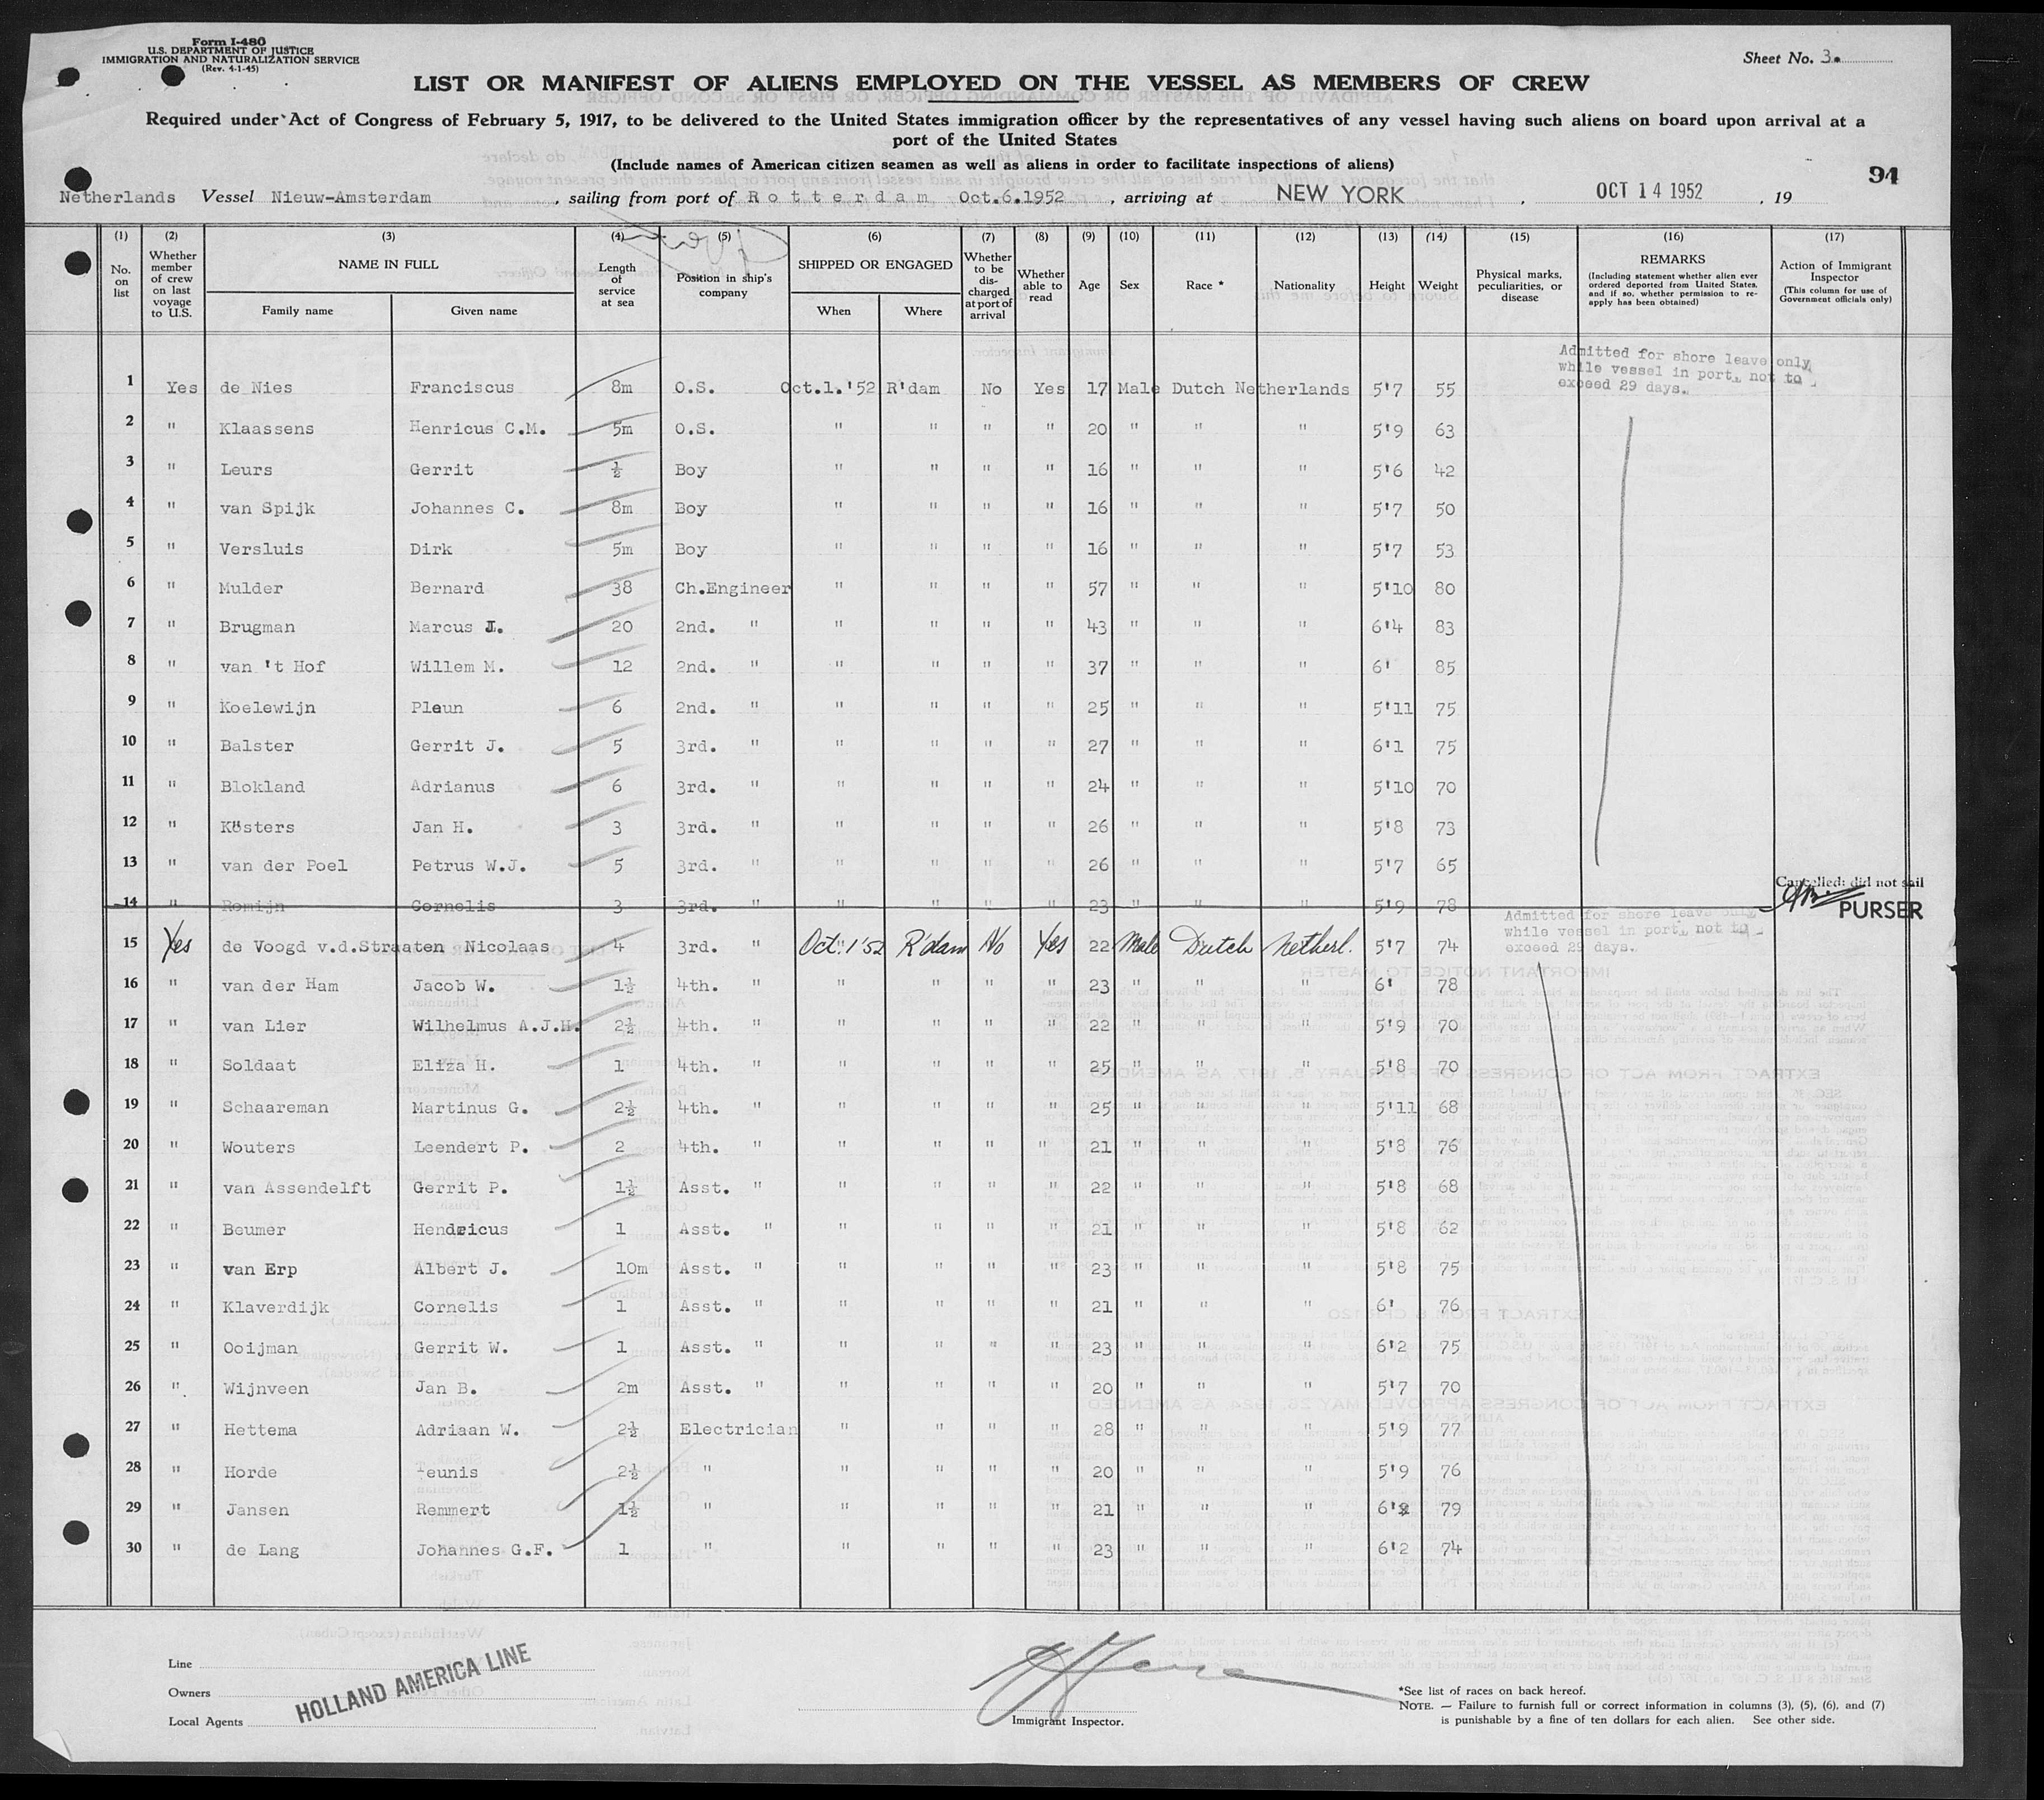 Form I-480
U.S. DEPARTMENT OF JUSTICE
IMMIGRATION AND NATURALIZATION SERVICE
(Rev. 4-1-45)
Sheet No. 3.
LIST OR MANIFEST OF ALIENS EMPLOYED ON THE VESSEL AS MEMBERS OF CREW
Required under Act of Congress of February 5, 1917, to be delivered to the United States immigration officer by the representatives of any vessel having such aliens on board upon arrival at a
port of the United States
(Include names of American citizen seamen as well as aliens in order to facilitate inspections of aliens)
94
Netherlands Vessel Nieuw-Amsterdam, sailing from port of Rotterdam Oct.6.1952, arriving at NEW YORK, OCT 14 1952, 19
(1) (2) (3) (4) (5) (6) (7) (8) (9) (10) (11) (12) (13) (14) (15) (16) (17)
No. on list
Whether member of crew on last voyage to U.S.
NAME IN FULL
Family name
Given name
Length of service at sea
Position in ship's company
SHIPPED OR ENGAGED
When
Where
Whether to be discharged at port of arrival
Whether able to read
Age
Sex
Race *
Nationality
Height
Weight
Physical marks, peculiarities, or disease
REMARKS
(Including statement whether alien ever ordered deported from United States, and if so, whether permission to re-apply has been obtained)
Action of Immigrant Inspector
(This column for use of Government officials only)
Admitted for shore leave only
while vessel in port, not to
exceed 29 days.
1 Yes de Nies Franciscus 8m O.S. Oct.1.'52 R'dam No Yes 17 Male Dutch Netherlands 5'7 55
2 " Klaassens Henricus C.M. 5m O.S. " " " " 20 " " " 5'9 63
3 " Leurs Gerrit ½ Boy " " " " 16 " " " 5'6 42
4 " van Spijk Johannes C. 8m Boy " " " " 16 " " " 5'7 50
5 " Versluis Dirk 5m Boy " " " " 16 " " " 5'7 53
6 " Mulder Bernard 38 Ch.Engineer " " " " 57 " " " 5'10 80
7 " Brugman Marcus L. 20 2nd. " " " " " 43 " " " 6'4 83
8 " van 't Hof Willem M. 12 2nd. " " " " " 37 " " " 6' 85
9 " Koelewijn Pleun 6 2nd. " " " " " 25 " " " 5'11 75
10 " Balster Gerrit J. 5 3rd. " " " " " 27 " " " 6'1 75
11 " Blokland Adrianus 6 3rd. " " " " " 24 " " " 5'10 70
12 " Kösters Jan H. 3 3rd. " " " " " 26 " " " 5'8 73
13 " van der Poel Petrus W.J. 5 3rd. " " " " " 26 " " " 5'7 65
Cancelled: did not sail
14 " Romijn Cornelis 3 3rd. " " " " " 23 " " " 5'9 78 PURSER
Admitted for shore leave only
while vessel in port, not to
exceed 29 days.
15 Yes de Voogd v.d.Straaten Nicolaas 4 3rd. " Oct. 1 '52 R'dam No Yes 22 Male Dutch Netherl. 5'7 74
16 " van der Ham Jacob W. 1½ 4th. " " " " " 23 " " " 6' 78
17 " van Lier Wilhelmus A.J.H. 2½ 4th. " " " " " 22 " " " 5'9 70
18 " Soldaat Eliza H. 1 4th. " " " " " 25 " " " 5'8 70
19 " Schaareman Martinus G. 2½ 4th. " " " " " 25 " " " 5'11 68
20 " Wouters Leendert P. 2 4th. " " " " " 21 " " " 5'8 76
21 " van Assendelft Gerrit P. 1½ Asst. " " " " " 22 " " " 5'8 68
22 " Beumer Hendricus 1 Asst. " " " " " 21 " " " 5'8 62
23 " van Erp Albert J. 10m Asst. " " " " " 23 " " " 5'8 75
24 " Klaverdijk Cornelis 1 Asst. " " " " " 21 " " " 6' 76
25 " Ooijman Gerrit W. 1 Asst. " " " " " 23 " " " 6'2 75
26 " Wijnveen Jan B. 2m Asst. " " " " " 20 " " " 5'7 70
27 " Hettema Adriaan W. 2½ Electrician " " " " 28 " " " 5'9 77
28 " Horde Teunis 2½ " " " " " 20 " " " 5'9 76
29 " Jansen Remmert 1½ " " " " " 21 " " " 6' 79
30 " de Lang Johannes G.F. 1 " " " " " 23 " " " 6'2 74
Line
Owners
Local Agents
HOLLAND AMERICA LINE
Immigrant Inspector.
*See list of races on back hereof.
NOTE. — Failure to furnish full or correct information in columns (3), (5), (6), and (7)
is punishable by a fine of ten dollars for each alien. See other side.